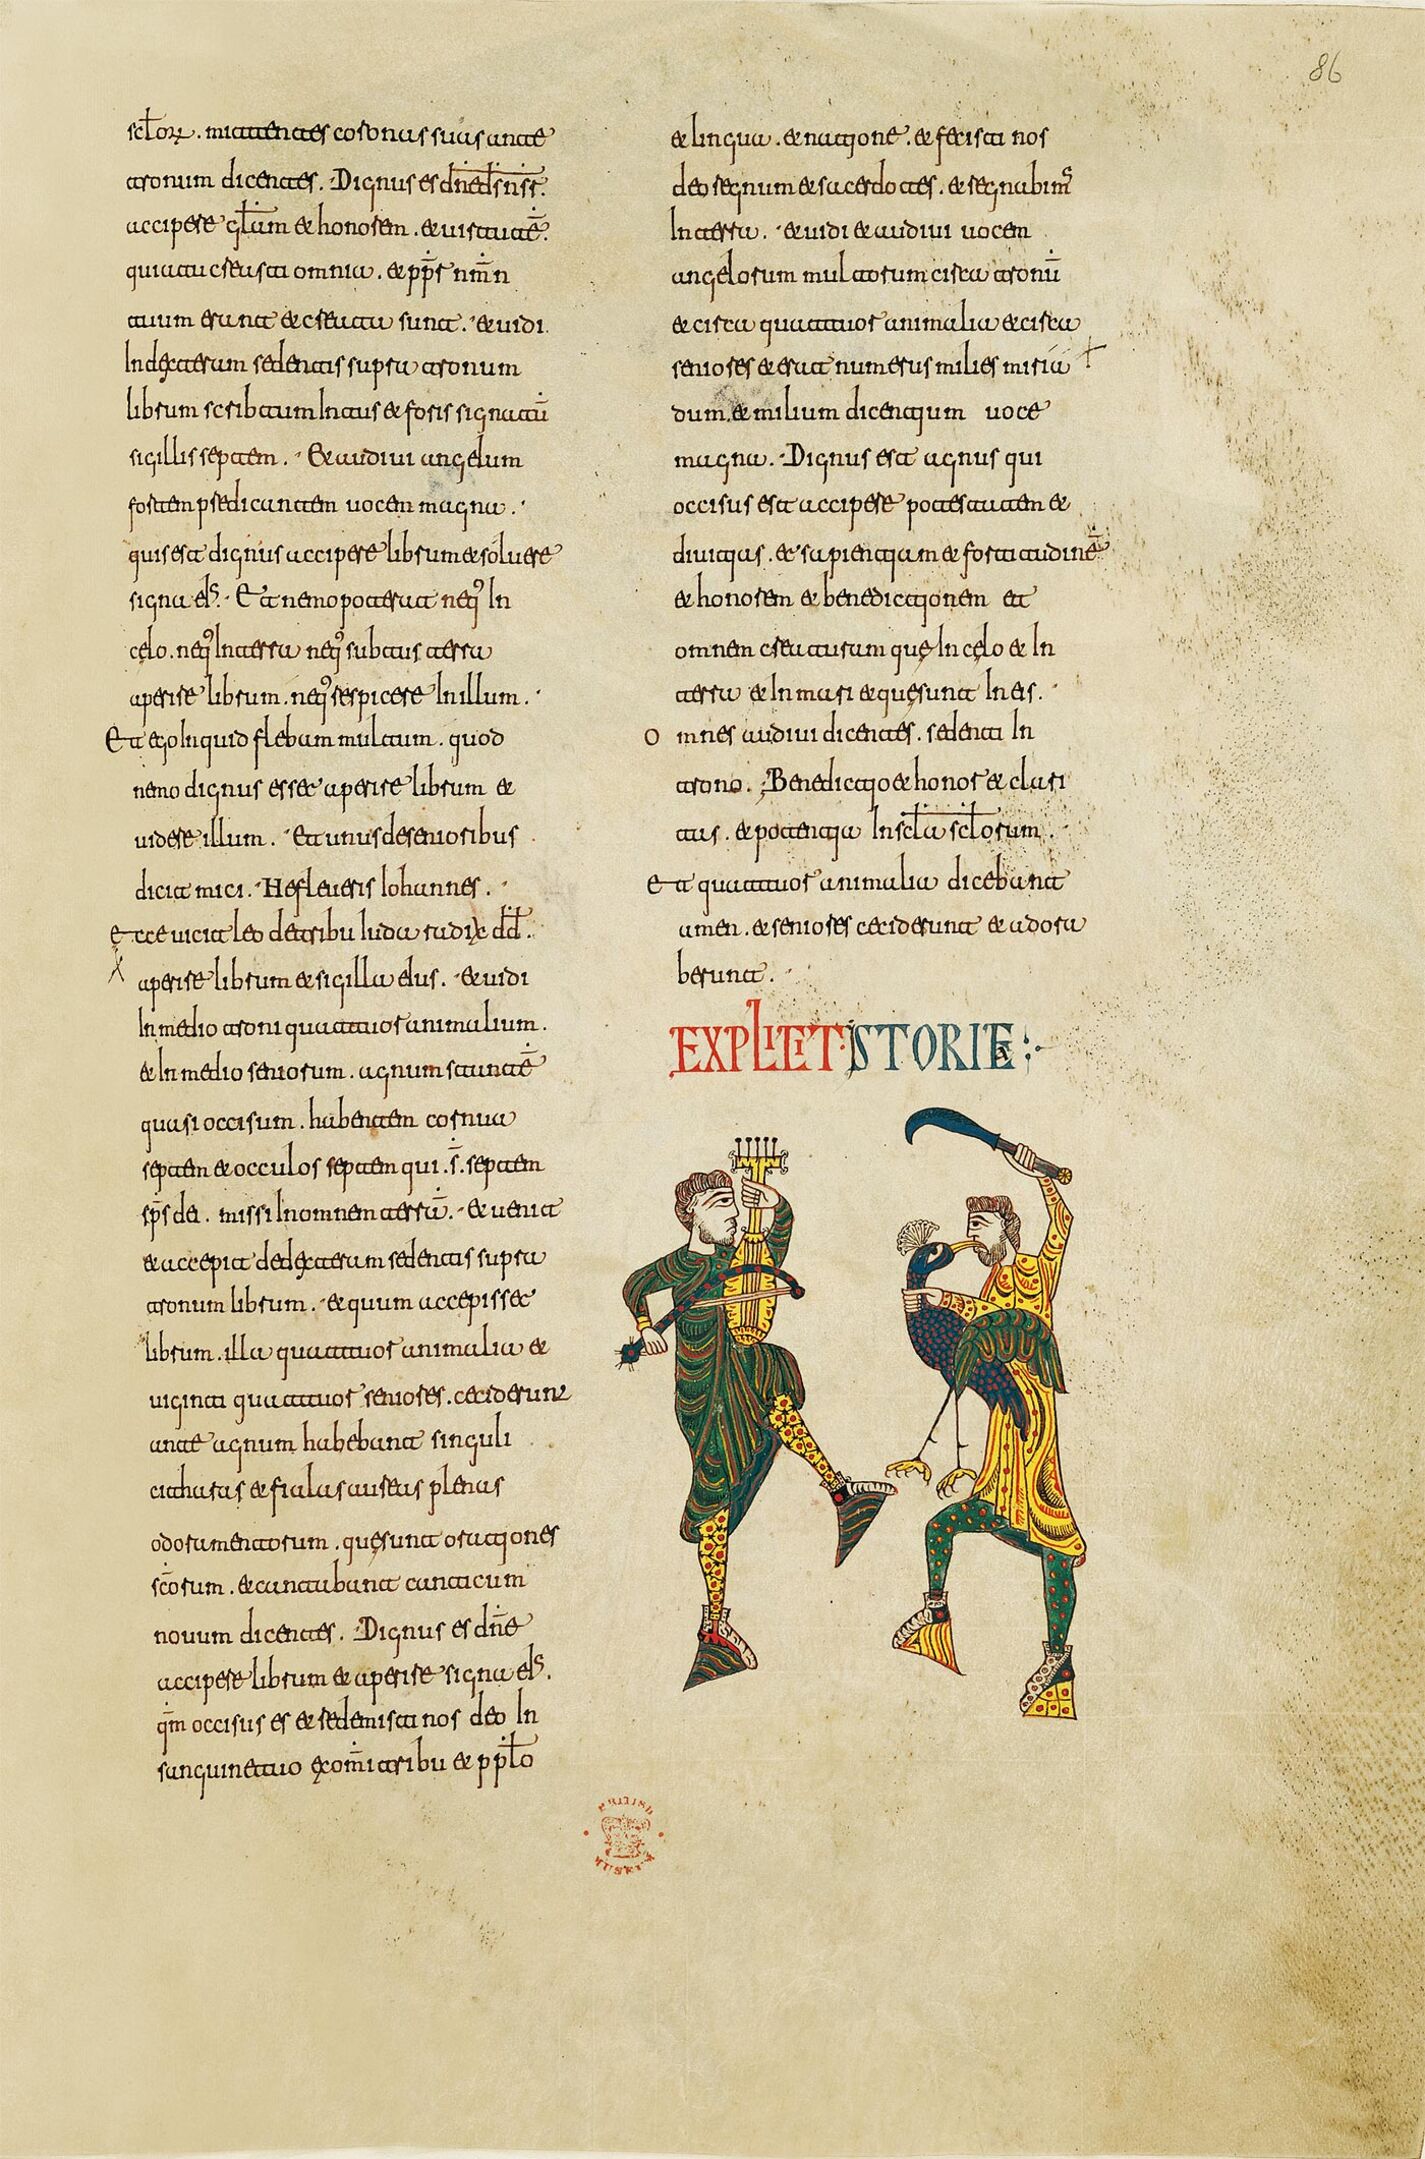 86
sctorum. mittentes coronas suas ante
tronum dicentes. Dignus es dne ds nsr.
accipere gtam et honorem. et uirtutem.
quia tu creasti omnia. et pp nmn
tuum erant et creata sunt. et uidi
In dexteram sedentis supra tronum
librum scribtum Intus et foris signatū
sigillis septem. Et audiui angelum
fortem predicantem uocem magna.
quis est dignus accipere librum et soluere
signa eis. Et nemo poterat neq In
celo. neq In terra neq subtus terra
aperire librum. neq respicere In illum.
Et ego Inquid flebam multum. quod
nemo dignus esset aperire librum et
uidere illum. Et unus de senioribus
dicit mici. Ne fleueris Iohannes.
Ecce uicit leo de tribu Iuda radix dd.
aperire librum et sigilla eius. et uidi
In medio troni quattuor animalium.
et In medio seniorum. agnum stantē
quasi occisum. habentem cornua
septem et occulos septem qui .s̄. septem
sps dei. missi In omnem terrā. et uenit
et accepit de dexteram sedentis supra
tronum librum. et quum accepisset
librum. illa quattuor animalia et
uiginti quattuor seniores. ceciderunt
ante agnum habebant singuli
citharas et fialas aureas plenas
odoramentorum. quę sunt orationes
scōrum. et cantabant canticum
nouum dicentes. Dignus es dne
accipere librum et aperire signa eis.
qm occisus es et redemisti nos deo In
sanguine tuo ex omī tribu et pplo
et lingua. et natione. et fecisti nos
deo regnum et sacerdotes. et regnabims
In terra. et uidi et audiui uocem
angelorum multorum circa tronū
et circa quattuor animalia et circa
seniores et erat numerus milies miria
dum. et milium dicentium uoce
magna. Dignus est agnus qui
occisus est accipere potestatem et
diuitias. et sapientiam et fortitudinē
et honorem et benedictionem et
omnem creaturam quę In celo et In
terra et In mari et quę sunt In eis.
Omnes audiui dicentes. sedenti In
trono. Benedictio et honor et clari
tas. et potentia In scla sclorum.
Et quattuor animalia dicebant
amen. et seniores ceciderunt et adora
berunt.
EXPLICIT STORIE
BRITISH
MUSEUM